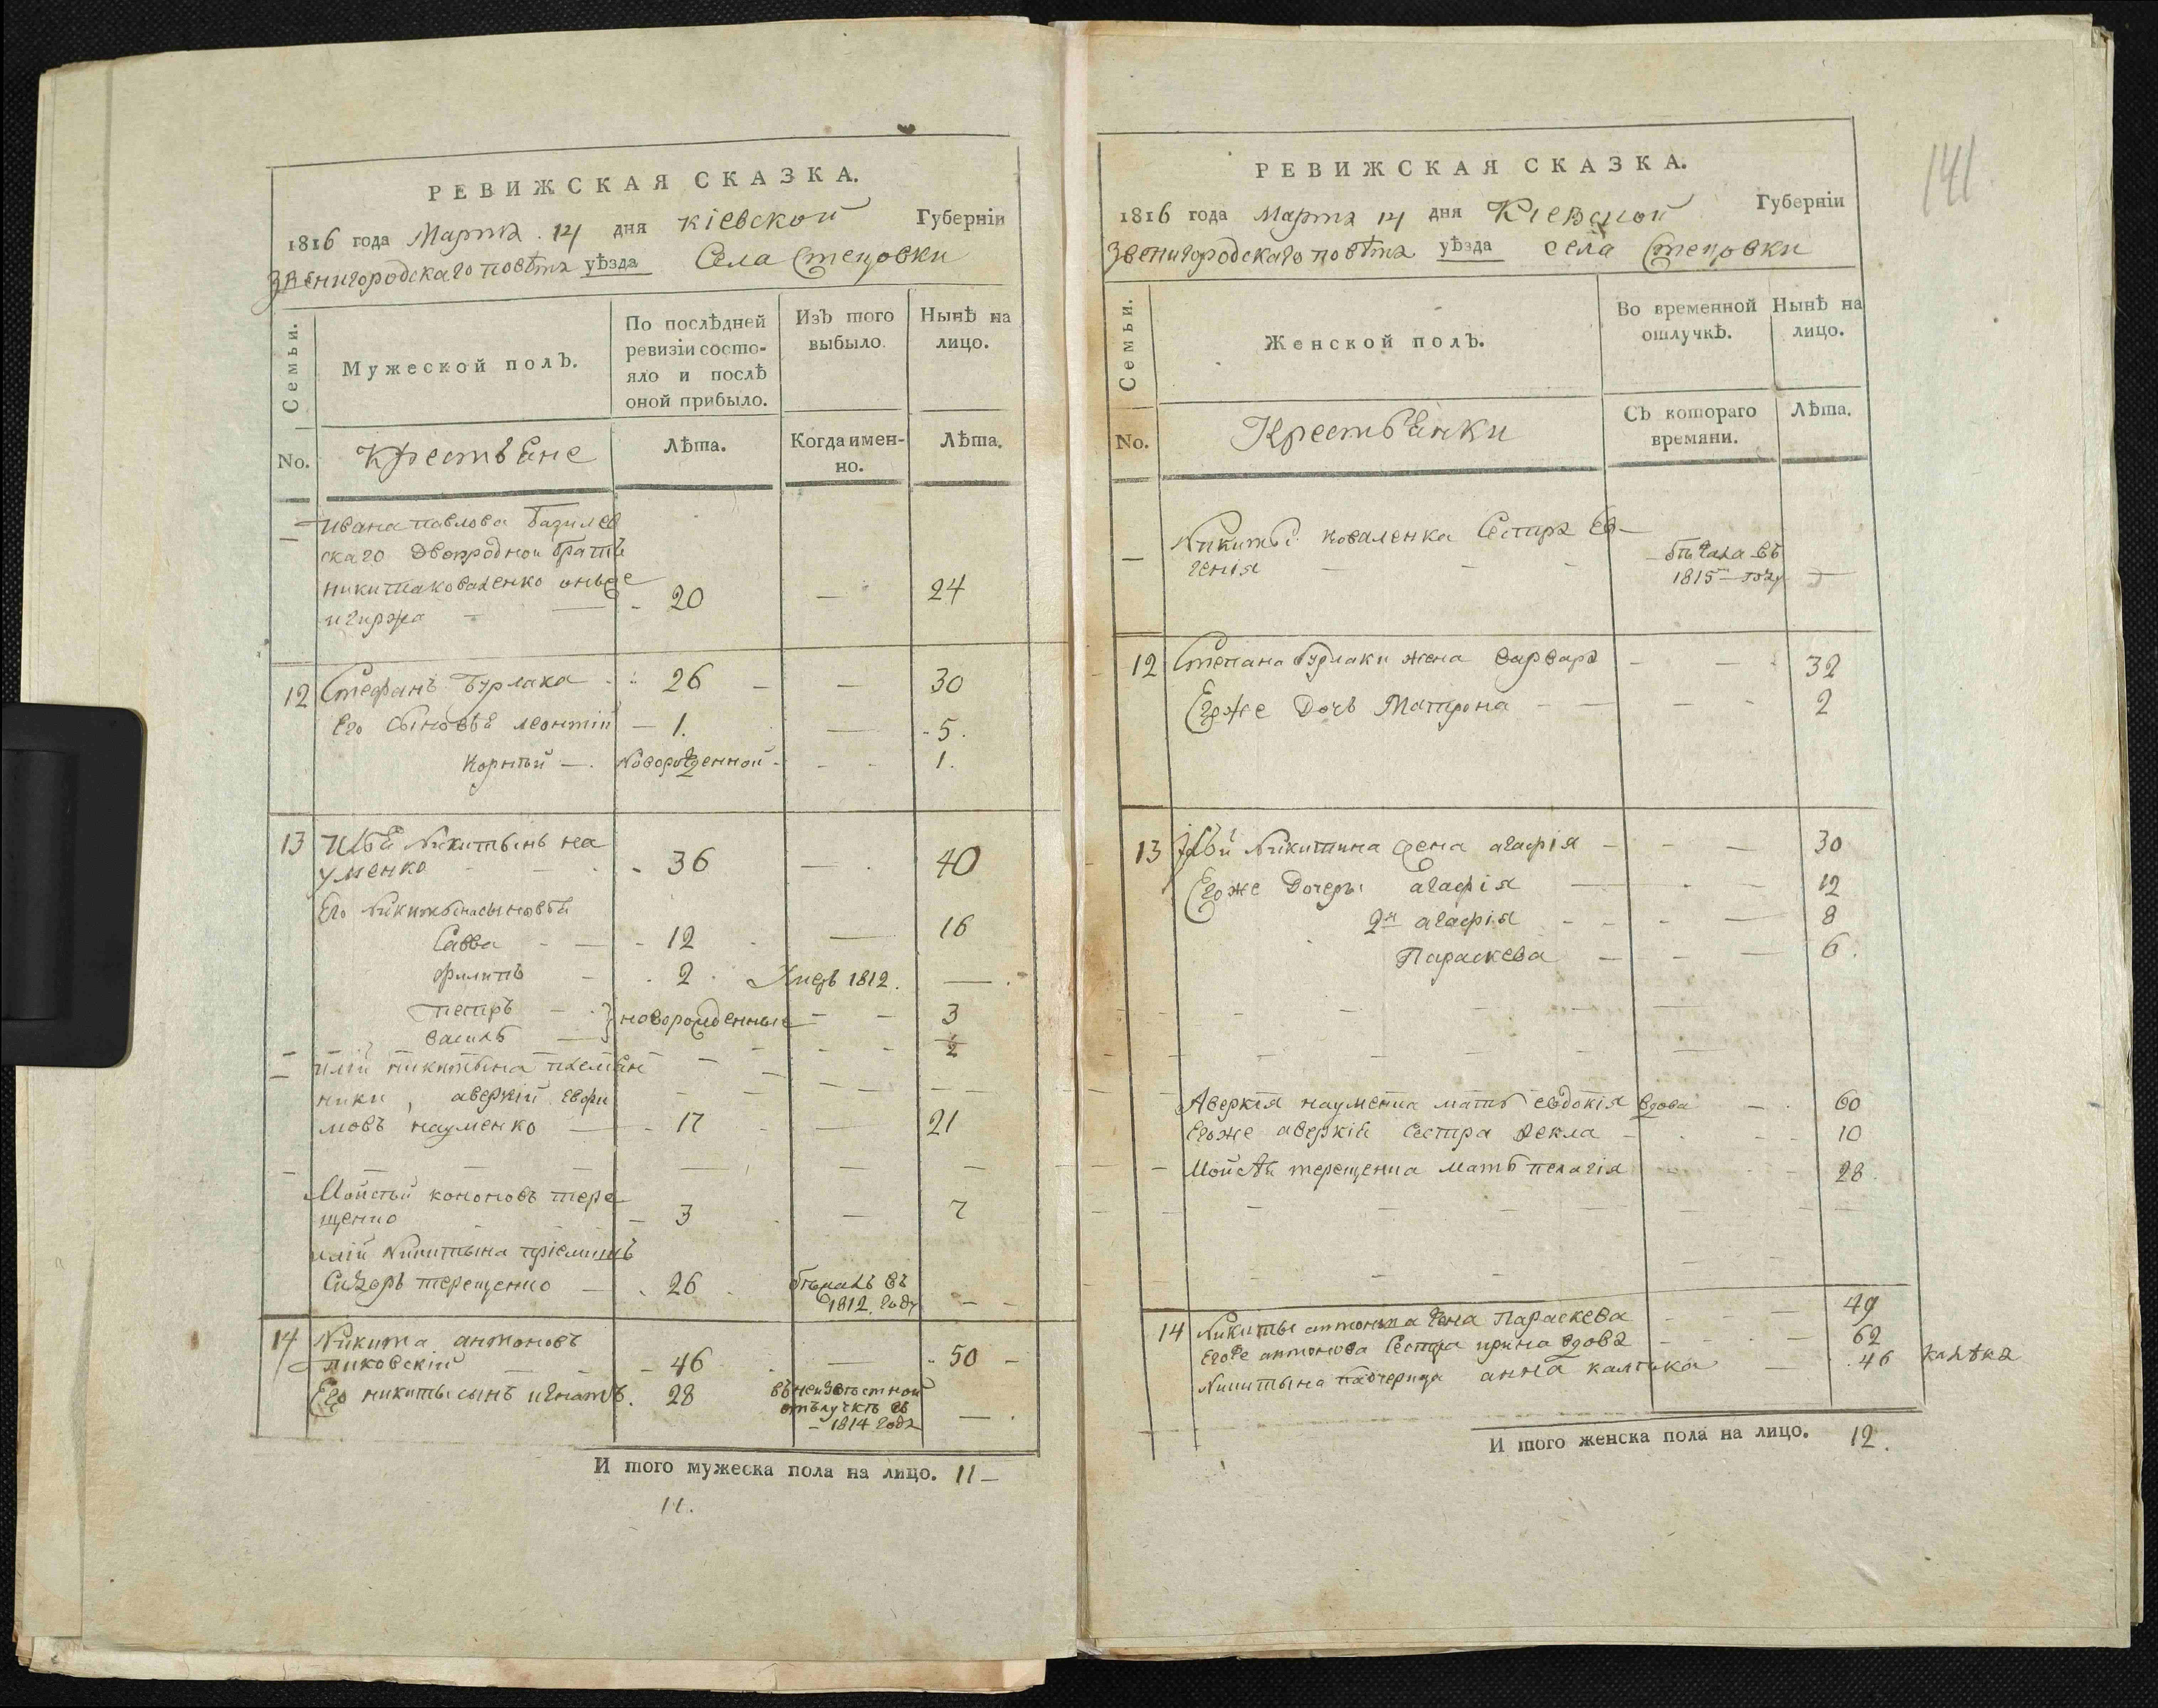 РЕВИЖСКАЯ СКАЗКА.
1816 года Марта 14 дня Кіевской Губерніи
Звенигородскаго повѣта уѣзда Села Стецовки
Семьи.
Мужеской полъ.
По послѣдней ревизіи состо-
яло и послѣ
оной прибыло.
Изъ того
выбыло.
Нынѣ на
лицо.
No.
Крестьяне
Лѣта.
Когда имен-
но.
Лѣта.
Ивана павлова Базилев
скаго двоюродной братъ
никита коваленко онъ же
20 — 24
12 Стефанъ Бурлака 26 — 30
Его сыновья леонтій — 1. — 5.
Корнѣй — Новорожденной — 1.
13 Илья Никитинъ на
уменко 36 — 40
Его Никитина сыновья
Савва 12 — 16
Филипъ 2 Умеръ 1812. —
Петръ — } новорожденные — 3
Василь — 1/2
иліи никитина племян
ники, аверкій Ефи
мовъ науменко — 17 — 21
Мойсѣй кононовъ тере
щенко 3 — 7
иліи Никитина пріемышъ
Сидоръ терещенко — 26 бѣжалъ въ
1812. году — —
14 Никита антоновъ
пиковскій — 46 — 50
Его никиты сынъ игнатъ. 28 въ неизвѣстной
отлучкѣ съ
1814 года —
И того мужеска пола на лицо. 11 —
11.
141
РЕВИЖСКАЯ СКАЗКА.
1816 года Марта 14 дня Кіевской Губерніи
Звенигородскаго повѣта уѣзда села Стецовки
Семьи.
Женской полъ.
Во временной
отлучкѣ.
Нынѣ на
лицо.
No.
Крестьянки
Съ котораго
времяни.
Лѣта.
— Никиты коваленка Сестра Ев-
генія — бѣжала въ
1815 году —
12 Степана Бурлаки жена варвара — 32
Егоже Дочь Матрона — 2
13 Ильи Никитина жена агафія — 30
Егоже Дочери агафія — 12
2я агафія — 8
Параскева — 6.
Аверкія науменка мать евдокія вдова — 60
Егоже аверкія Сестра Фекла — 10
Мойсѣя терещенка мать пелагія 28
14 Никиты антонова жена Параскева — 49
Егоже антонова Сестра ирина вдова — 62
Никитина падчерица анна калѣка — 46 калѣка
И того женска пола на лицо. 12.